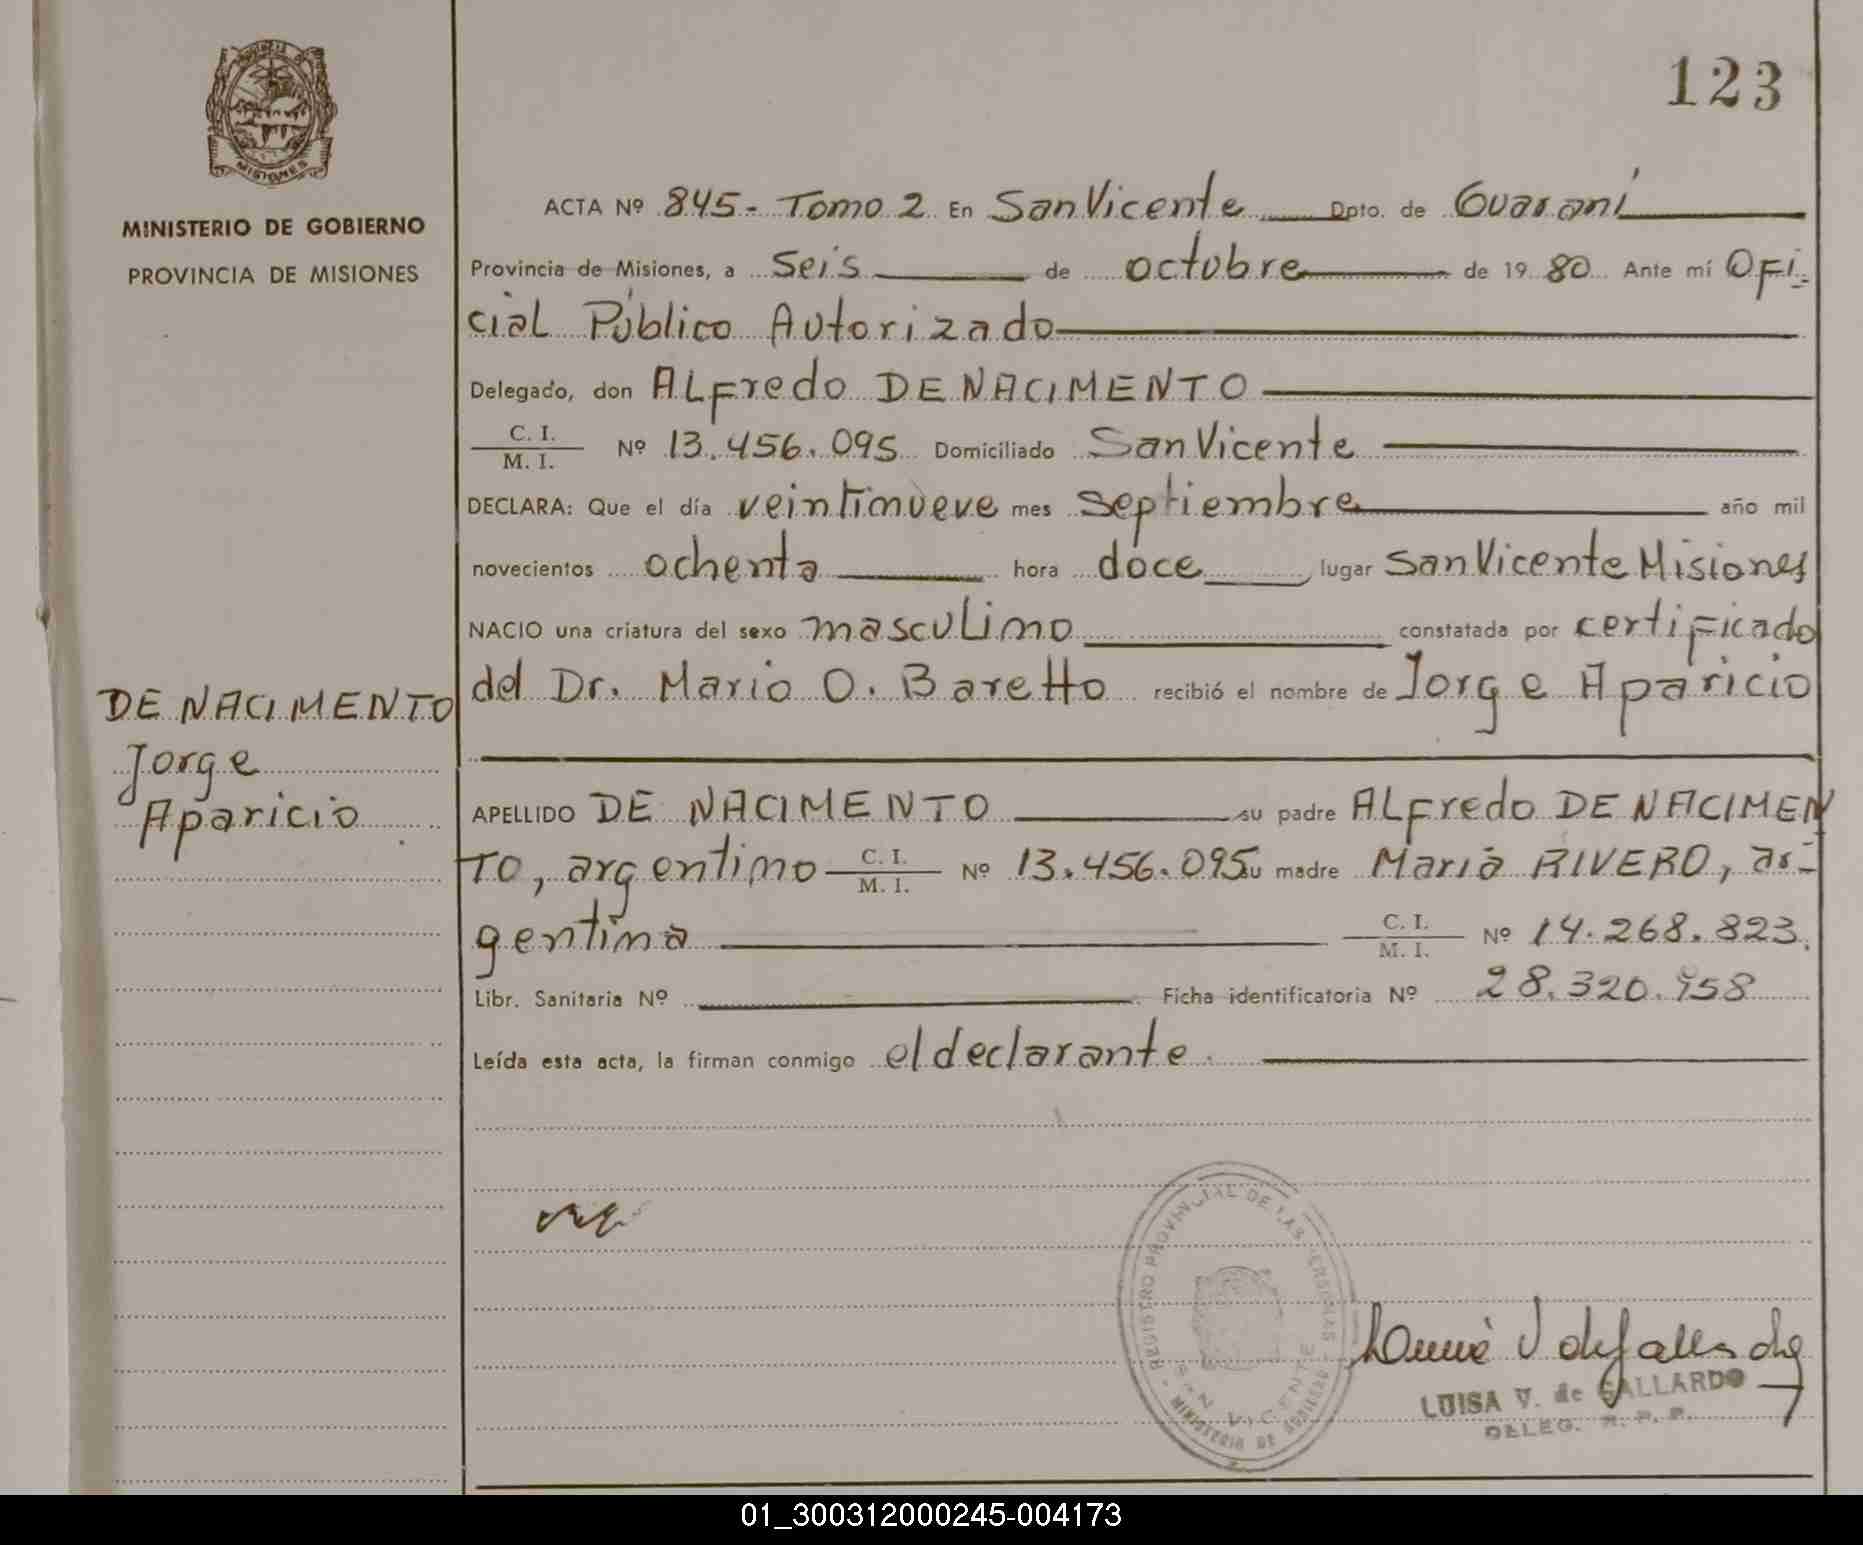 123
MISIONES
MINISTERIO DE GOBIERNO
PROVINCIA DE MISIONES
ACTA Nº 845- Tomo 2 En San Vicente Dpto. de Guaraní
Provincia de Misiones, a seis de octubre de 1980 Ante mí Ofi-
cial Público Autorizado
Delegado, don Alfredo DE NACIMENTO
C. I.
M. I.
Nº 13.456.095 Domiciliado San Vicente
DECLARA: Que el día veintinueve mes septiembre año mil
novecientos ochenta hora doce lugar San Vicente Misiones
NACIO una criatura del sexo masculino constatada por certificado
del Dr. Mario O. Baretto recibió el nombre de Jorge Aparicio
DE NACIMENTO
Jorge
Aparicio
APELLIDO DE NACIMENTO su padre Alfredo DE NACIMEN
TO, argentino C. I. M. I. Nº 13.456.095 su madre María RIVERO, ar-
gentina C. I. M. I. Nº 14.268.823.
Libr. Sanitaria Nº Ficha identificatoria Nº 28.320.958
Leída esta acta, la firman conmigo el declarante.
REGISTRO PROVINCIAL DE LAS PERSONAS
SAN VICENTE
MINISTERIO DE GOBIERNO
LUISA V. de GALLARDO
DELEG. R. P. P.
01_300312000245-004173